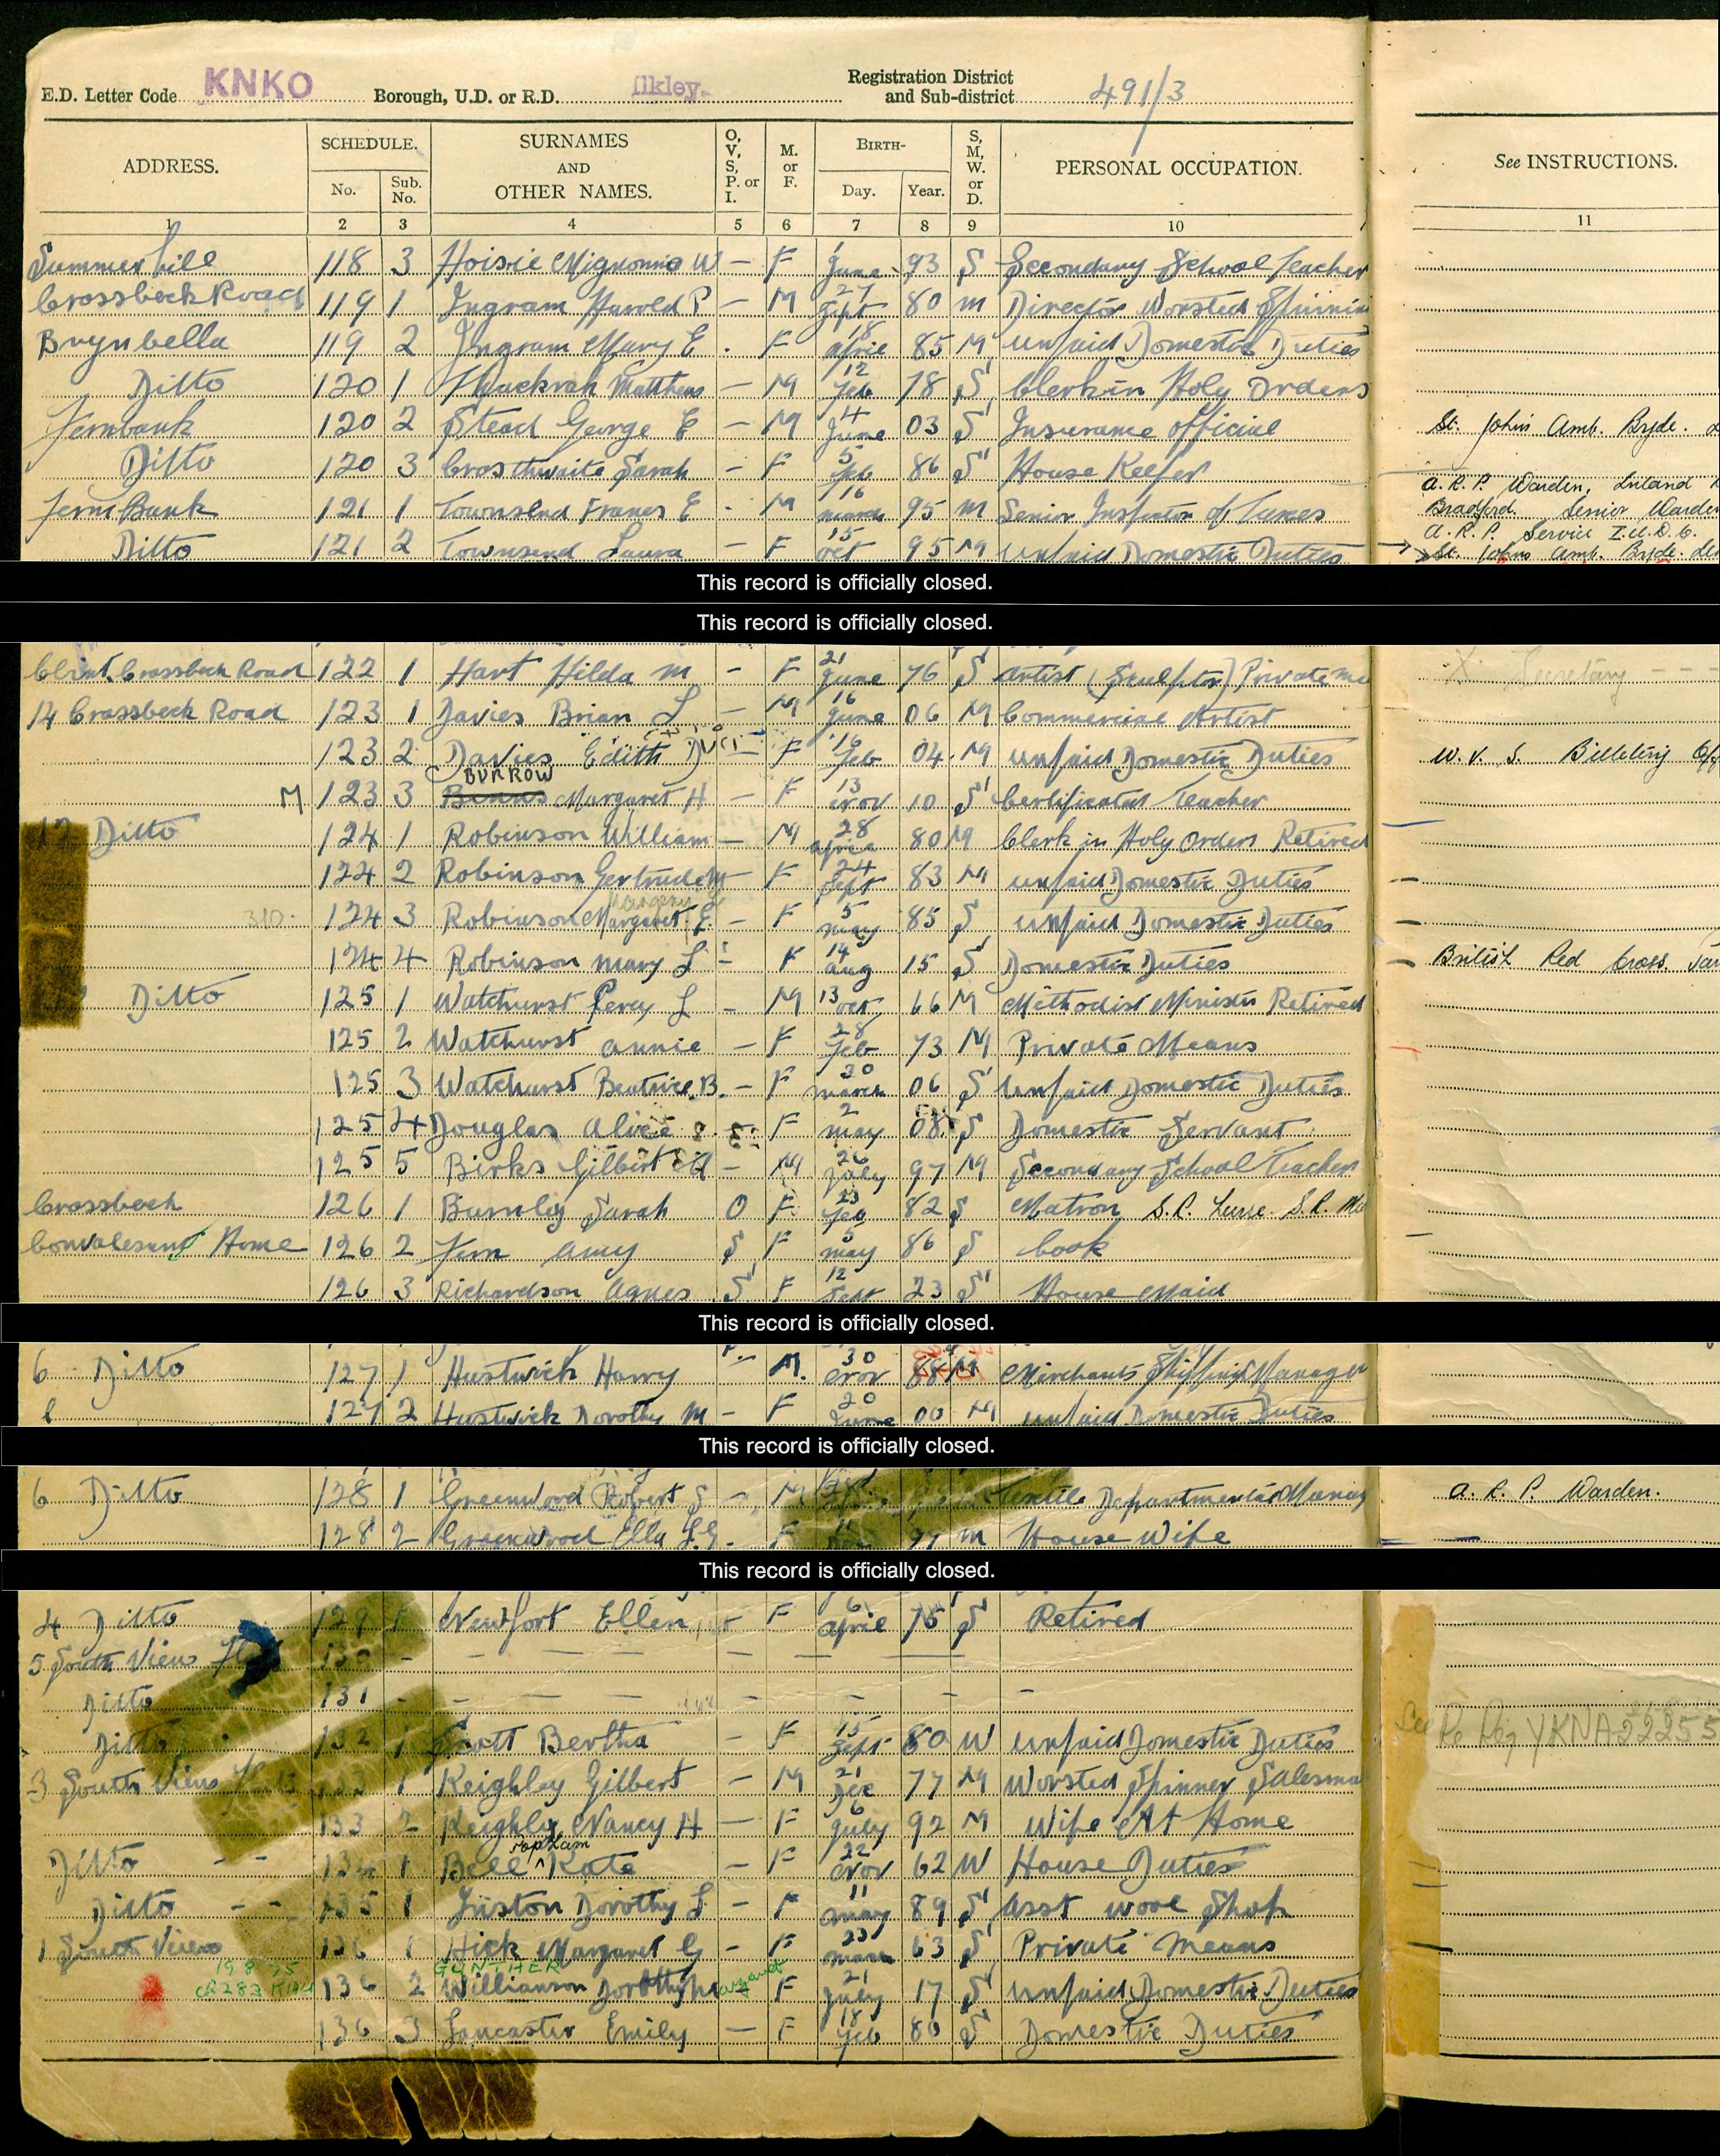 E.D. Letter Code KNKO Borough, U.D. or R.D. Ilkley. Registration District and Sub-district 491/3
ADDRESS. SCHEDULE. No. Sub. No. SURNAMES AND OTHER NAMES. O, V, S, P. or I. M. or F. BIRTH- Day. Year. S, M, W. or D. PERSONAL OCCUPATION. See INSTRUCTIONS.
1 2 3 4 5 6 7 8 9 10 11
Summerhill 118 3 Hoisie W — F 1 June 93 S Secondary School Teacher
Crossbeck Road 119 1 Ingram Harold P — M 27 Sept 80 M Director Worsted
Brynbella 119 2 Ingram Mary E . F 18 April 85 M Unpaid Domestic Duties
Ditto 120 1 Matthew — M 12 Feb 78 S Clerk in Holy Orders
Fernbank 120 2 Stead George E — M 4 June 03 S Insurance official St. Johns Amb. Bgde.
Ditto 120 3 Crosthwaite Sarah — F 5 Feb 86 S House Keeper
Fern Bank 121 1 Townsend E . M 16 March 95 M Senior Inspector of Taxes A. R. P. Warden, Inland
Bradford. Senior Warden
Ditto 121 2 Townsend Laura — F 15 Oct 95 M Unpaid Domestic Duties A. R. P. Service I.U.D.C.
St. Johns Amb. Bgde.
This record is officially closed.
This record is officially closed.
Clint, Crossbeck Road 122 1 Hart Hilda M — F 21 June 76 S Artist (Sculptor) Private Secretary
14 Crossbeck Road 123 1 Davies Brian L — M 16 June 06 M Commercial Artist
123 2 Davies Edith D — F 16 Feb 04 M Unpaid Domestic Duties W. V. S. Billeting
BURROW
M 123 3 Binns Margaret H — F 13 Nov 10 S Certificated Teacher
12 Ditto 124 1 Robinson William — M 28 April 80 M Clerk in Holy Orders Retired
124 2 Robinson Gertrude M — F 24 Sept 83 M Unpaid Domestic Duties
Margery
310. 124 3 Robinson Margaret E. — F 5 May 85 S Unpaid Domestic Duties
124 4 Robinson Mary L — F 14 Aug 15 S Domestic Duties British Red Cross.
Ditto 125 1 Watchurst Percy L — M 13 Oct 66 M Methodist Minister Retired
125 2 Watchurst Annie — F 28 Feb 73 M Private Means
125 3 Watchurst Beatrice B. — F 30 March 06 S Unpaid Domestic Duties
125 4 Douglas Alice S F 2 May 08 S Domestic Servant
125 5 Birks Gilbert A — M 26 July 97 M Secondary School Teacher
Crossbeck 126 1 Burnley Sarah O F 23 Feb 82 S Matron
Convalescent Home 126 2 Fern Amy S F 5 May 86 S Cook
126 3 Richardson Agnes S F 12 Sept 23 S House Maid
This record is officially closed.
6 Ditto 127 1 Hustwick Harry M. 30 Nov 88 M Merchants Shipping Manager
127 2 Hustwick Dorothy M — F 20 June 00 M Unpaid Domestic Duties
This record is officially closed.
6 Ditto 128 1 Greenwood Robert S — M Textile Departmental A. R. P. Warden.
128 2 Greenwood Ella F 11 97 M House Wife
This record is officially closed.
4 Ditto 129 1 Newport Ellen F 6 April 75 S Retired
5 South View 130 - — — — — — —
Ditto 131 - — — — — — — -
Ditto 132 1 Scott Bertha — F 15 Sept 80 W Unpaid Domestic Duties See Re Reg YKNA 22255
3 South View 1 Keighley Gilbert — M 21 Dec 77 M Worsted Spinner
133 2 Keighley Nancy H — F 6 July 92 M Wife At Home
Popham
Ditto - - 134 1 Bell ^ Kate — F 22 Nov 62 W House Duties
Ditto - - 135 1 Dorothy L — F 11 May 89 S Asst wool Shop
1 South View 136 1 Hick Margaret G — F 23 March 63 S Private Means
19 8 75 GÜNTHER Margaret
136 2 Williamson Dorothy M F 21 July 17 S Unpaid Domestic Duties
136 3 Lancaster Emily — F 18 Feb 80 S Domestic Duties